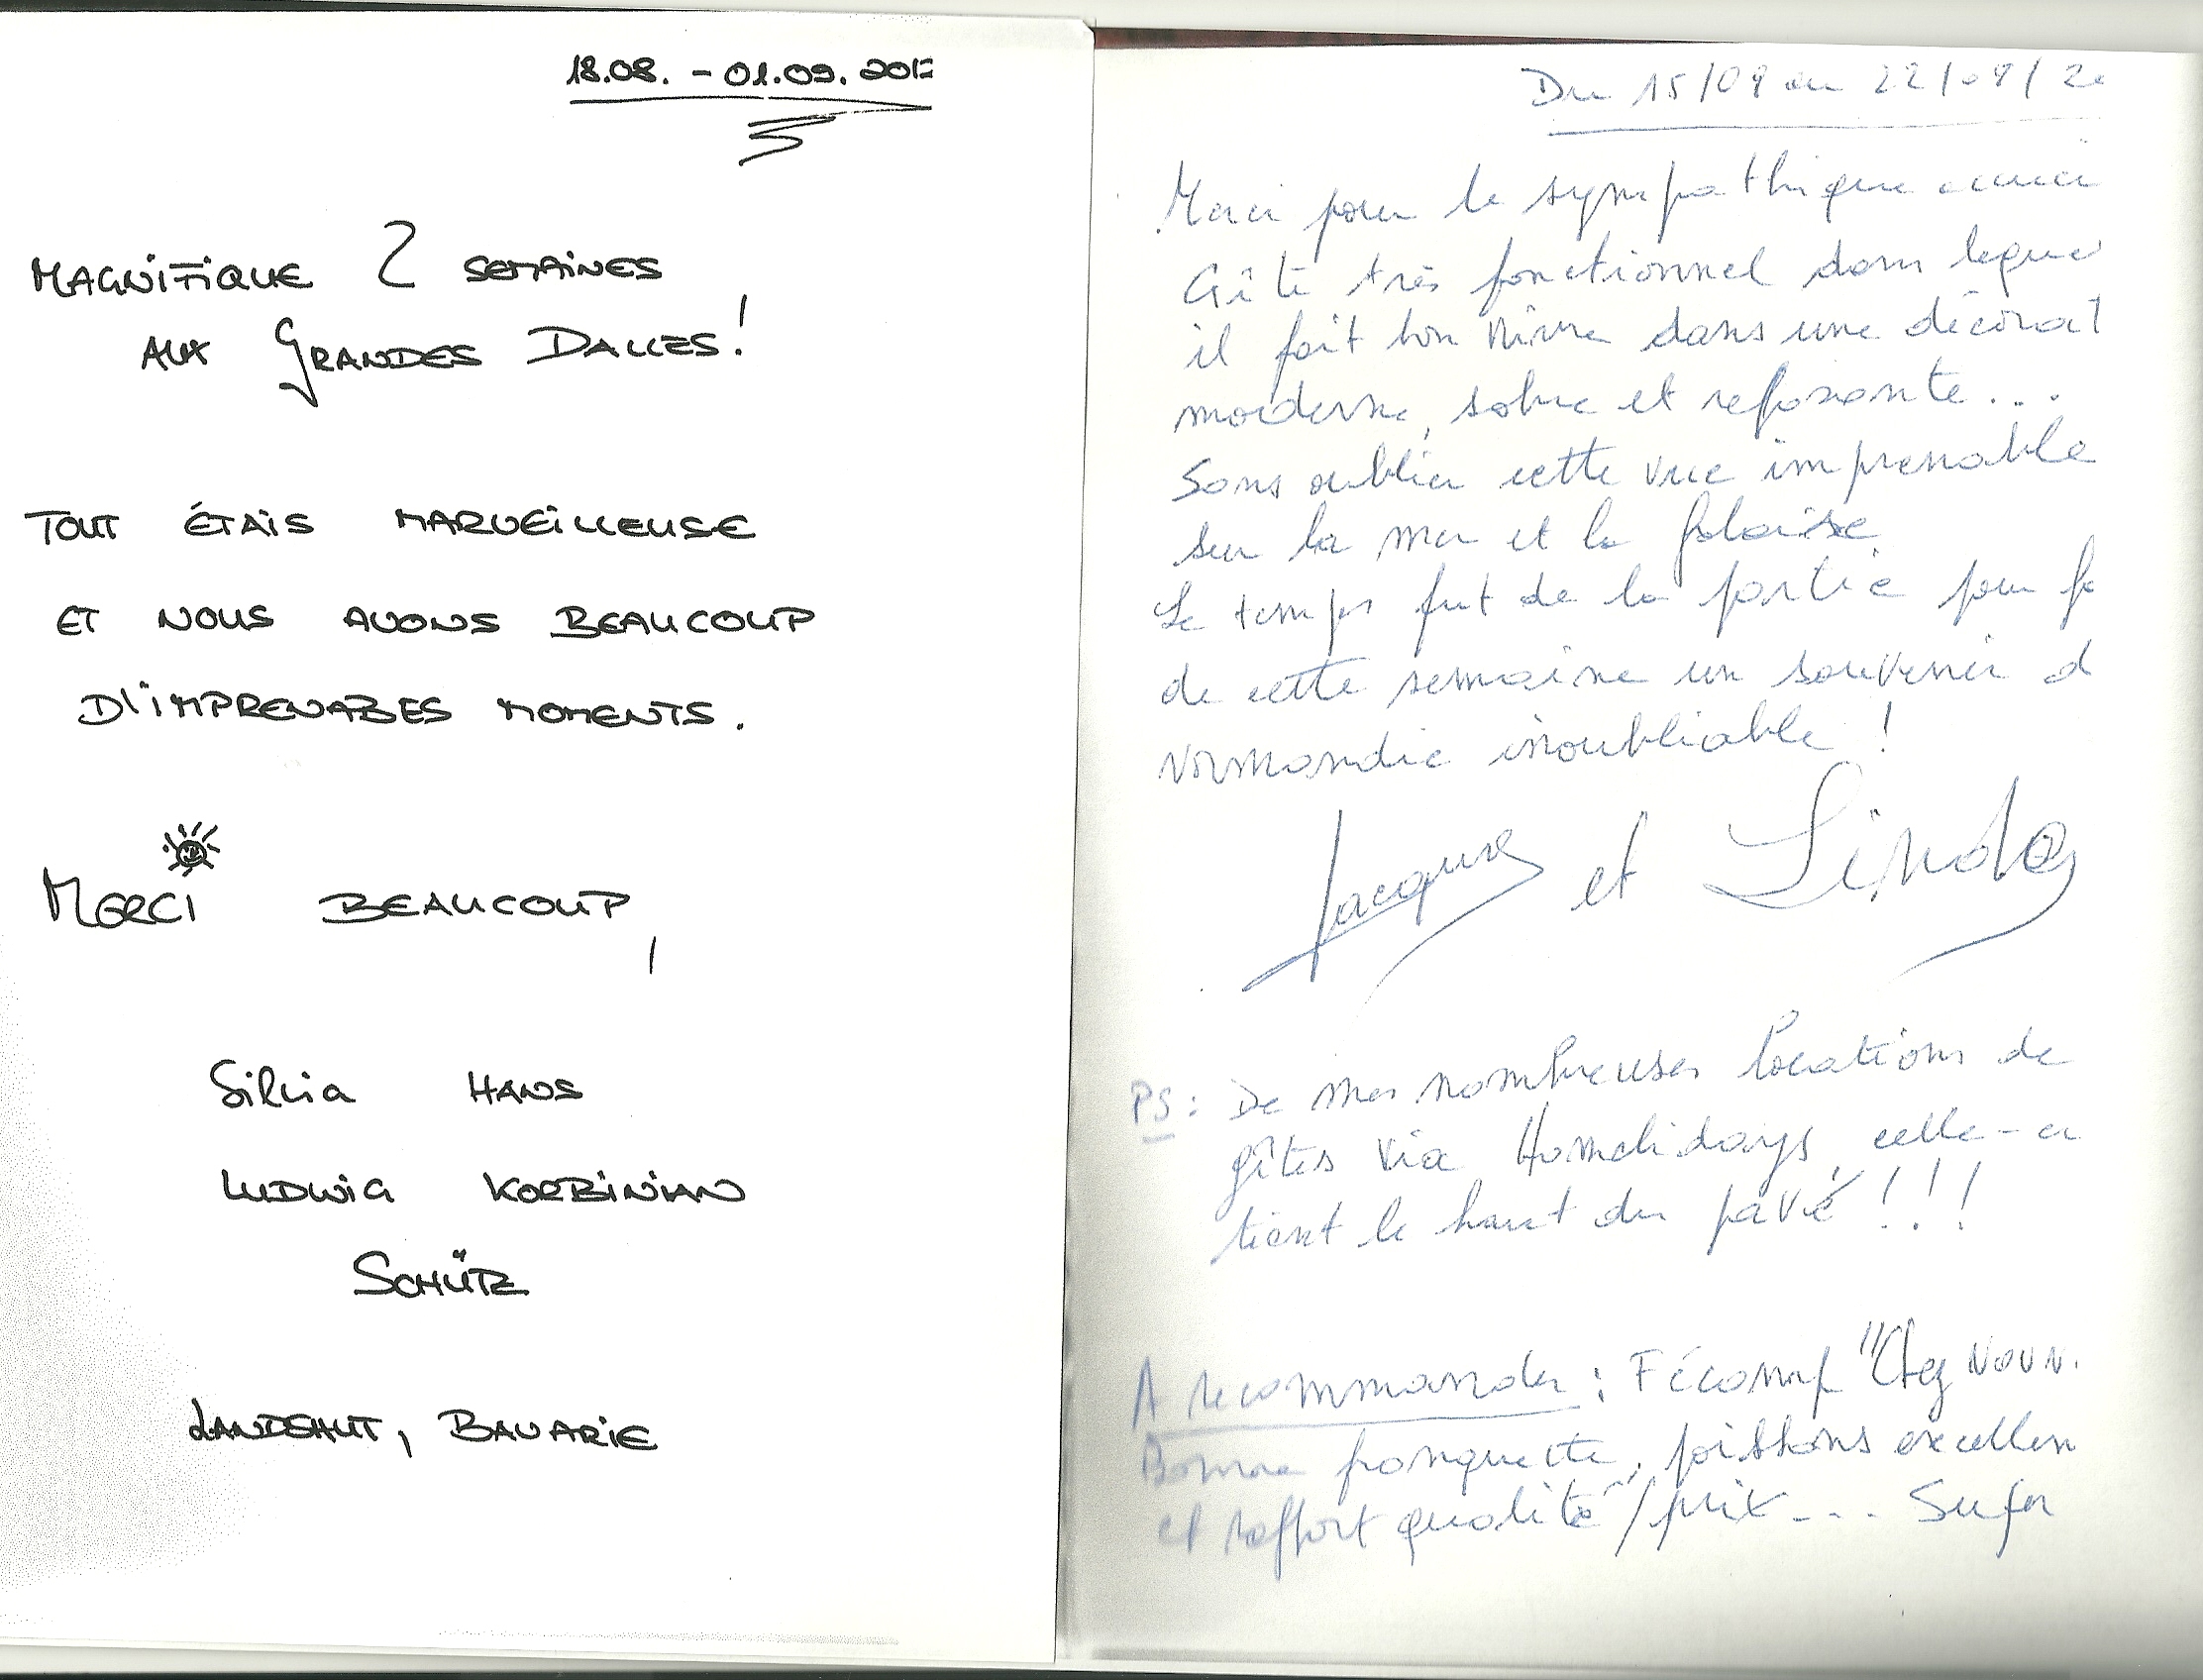 18.08. - 01.09. 201
MAGNIFIQUE 2 SEMAINES
AUX GRANDES DALLES!
TOUT ÉTAIS MARVEILLEUSE
ET NOUS AVONS BEAUCOUP
D'IMPRENABES MOMENTS.
MERCI BEAUCOUP,
Silvia HANS
LUDWIG KORBINIAN
SCHÜTZ
LANDSHUT, BAVARIE
Du 15/09 au 22/09/20
Merci pour le sympathique accuei
Gîte très fonctionnel dans leque
il fait bon vivre dans une décorat
moderne, sobre et reposante...
Sans oublier cette vue imprenable
sur la mer et la falaise
Le temps fut de la partie pour fa
de cette semaine un souvenir d
normandie inoubliable !
Jacques et Linda
PS : De mes nombreuses locations de
gîtes via Homelidays, celle-ci
tient le haut du pavé !!!
A recommander : Fécamp "Chez Noun.
Bonne franquette, poissons excellen
et rapport qualité/prix... Super